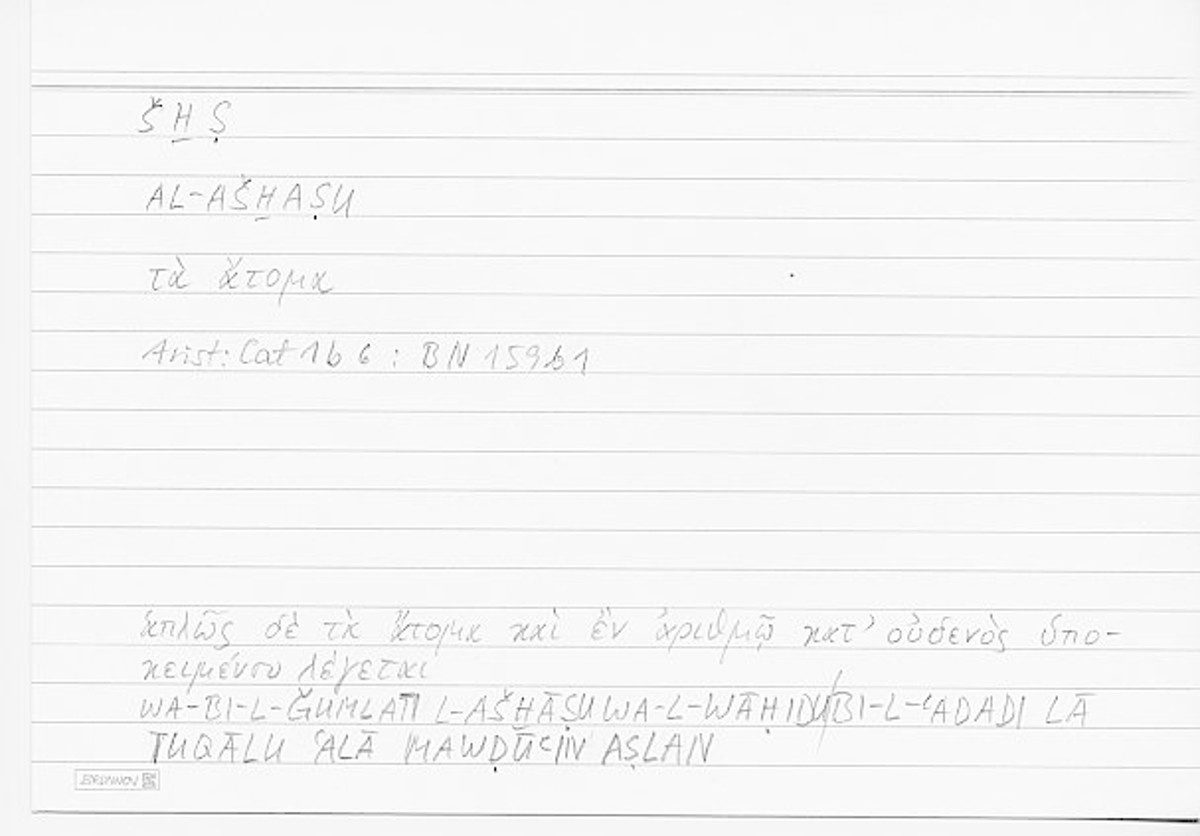 Š H̱ Ṣ
AL-AŠH̱AṢU
τὰ ἄτομα
Arist: Cat 1b 6 : BN 159b1
ἁπλῶς δὲ τὰ ἄτομα καὶ ἓν ἀριθμῷ κατ' οὐδενὸς ὑπο-
κειμένου λέγεται
WA-BI-L-ǦUMLATI L-AŠH̱ĀṢU WA-L-WĀḤIDU BI-L-ʿADADI LĀ
TUQĀLU ʿALĀ MAWḌŪʿIN AṢLAN